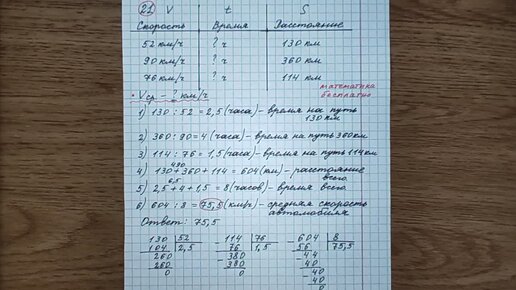 21 V t S
Скорость Время Расстояние
52 км/ч ? ч 130 км
90 км/ч ? ч 360 км
76 км/ч ? ч 114 км
математика
бесплатно
• Vср – ? км/ч
1) 130 : 52 = 2,5 (часа) – время на путь
130 км
2) 360 : 90 = 4 (часа) – время на путь 360 км
3) 114 : 76 = 1,5 (часа) – время на путь 114 км
490
4) 130 + 360 + 114 = 604 (км) – расстояние
всего.
6,5
5) 2,5 + 4 + 1,5 = 8 (часов) – время всего.
6) 604 : 8 = 75,5 (км/ч) – средняя скорость
автомобиля
Ответ: 75,5
130 52 114 76 604 8
104 2,5 76 1,5 56 75,5
260 380 44
260 380 40
0 0 40
40
0